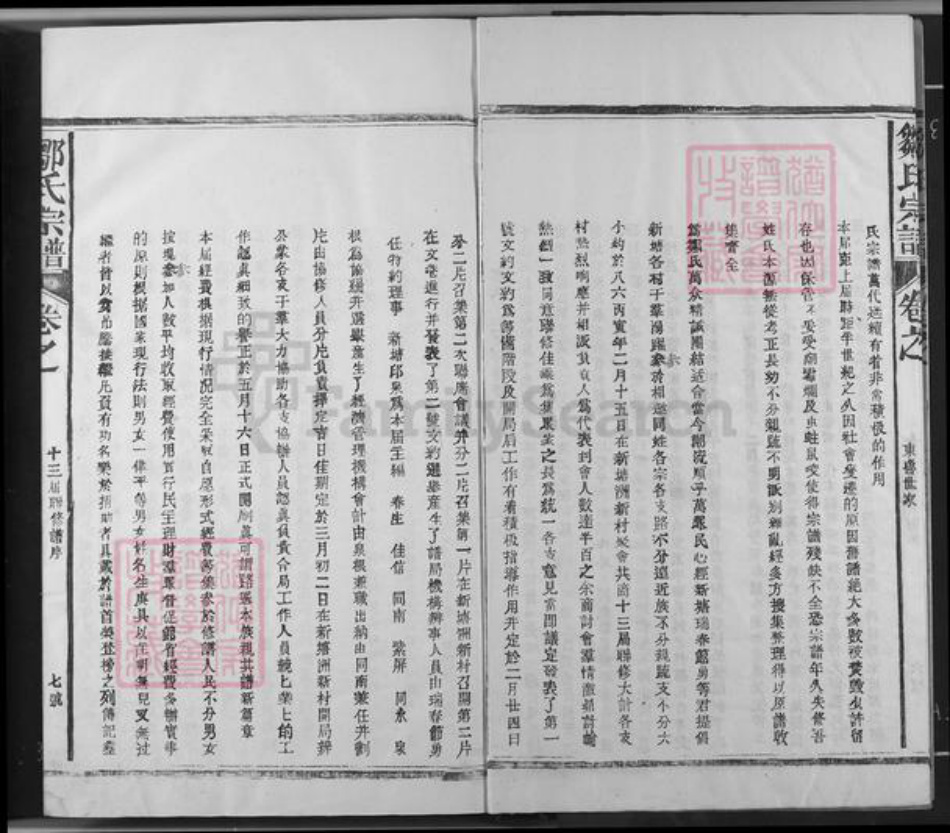 鄒氏宗譜 卷之
東魯世家
氏宗譜萬代延續有着非常積極的作用
本屆距上屆時距半世紀之久因社會變遷的原因舊譜絕大多數被焚毀少許留
存也因保管不妥受潮霉爛及虫蛀鼠咬使得宗譜殘缺不全恐宗譜年久失修吾
姓氏本源無從考正長幼不分親疏不明派別雜亂經多方搜集整理得以原譜收
集齊全
鄒氏萬衆精誠團結适合當今潮流順乎萬眾民心經新塘瑞春節勇等君提倡
新塘各村于羣湯躍參於相邀同姓各宗各支路不分遠近族不分親疏支不分大
小約於八六丙寅年二月十五日在新塘洲新村聚會共商十三屆聯修大計各支
村熱烈响應并相派負人爲代表到會人數達半百之余商討會羣情激昂討論
熱烈一致同意聯修佳義爲集眾業之長爲統一各支意見當即議定發表了第一
號文約文約爲籌備階段及開局后工作有着積极指導作用并定於二月廿四日
分二片召集第二次聯席會議并分二片召集第一片在新塘洲新村召開第二片
在文巷進行并發表了第二號文約選舉產生了譜局機構辦事人員由瑞春節勇
任特約理事 新塘邱泉爲本屆主編 春生 佳信 同南 紫屏 同永 泉
根爲協理并選舉產生了經濟管理機構會計由泉根兼職出納由同南兼任并劃
片由協修人員分片負責擇定吉日佳期定於三月初二日在新塘洲新村開局辦
公蒙各支于羣大力協助各支協辦人員認真負責合局工作人員兢匕業匕的工
作認真細致的譽正於五月十六日正式開刷真可謂路遥本族親共譜新篇章
本屆經費根据現行情况完全采取自愿形式經費籌集参於修譜人民不分男女
按現参加人數平均收取經費使用實行民主理財羣眾督促節省經費多辦實事
的原則根据國家現行法則男女一律平等男女姓名生庚具以在明無兒叉無过
繼者皆以貪 繼接續凡貢有功名樂於捐助者具載於譜首榮登榜之列傳記臺
鄒氏宗譜 卷之一
十三屆聯修譜序
七號